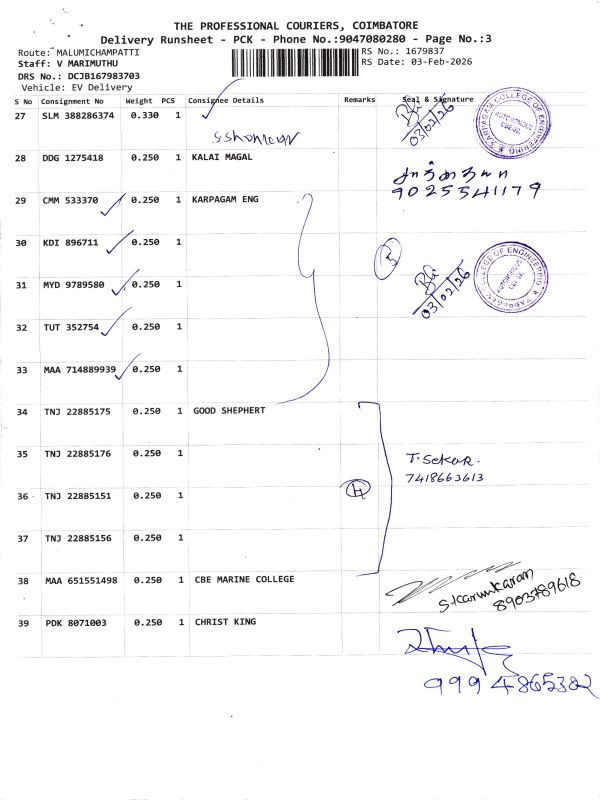 THE PROFESSIONAL COURIERS, COIMBATORE
Delivery Runsheet - PCK - Phone No.:9047080280 - Page No.:3
Route: MALUMICHAMPATTI
Staff: V MARIMUTHU
DRS No.: DCJB167983703
Vehicle: EV Delivery
RS No.: 1679837
RS Date: 03-Feb-2026
S No Consignment No Weight PCS Consignee Details Remarks Seal & Signature
27 SLM 388286374 0.330 1
03/02/26
KARPAGAM COLLEGE OF ENGINEERING
AUTONOMOUS
CBE-32
28 DDG 1275418 0.250 1 KALAI MAGAL
9025541179
29 CMM 533370 0.250 1 KARPAGAM ENG
30 KDI 896711 0.250 1
5
03/02/26
KARPAGAM COLLEGE OF ENGINEERING
AUTONOMOUS
CBE-32
31 MYD 9789580 0.250 1
32 TUT 352754 0.250 1
33 MAA 714889939 0.250 1
34 TNJ 22885175 0.250 1 GOOD SHEPHERT
35 TNJ 22885176 0.250 1
T. Sekar.
7418663613
36 TNJ 22885151 0.250 1
4
37 TNJ 22885156 0.250 1
38 MAA 651551498 0.250 1 CBE MARINE COLLEGE
8903789618
39 PDK 8071003 0.250 1 CHRIST KING
9994865382